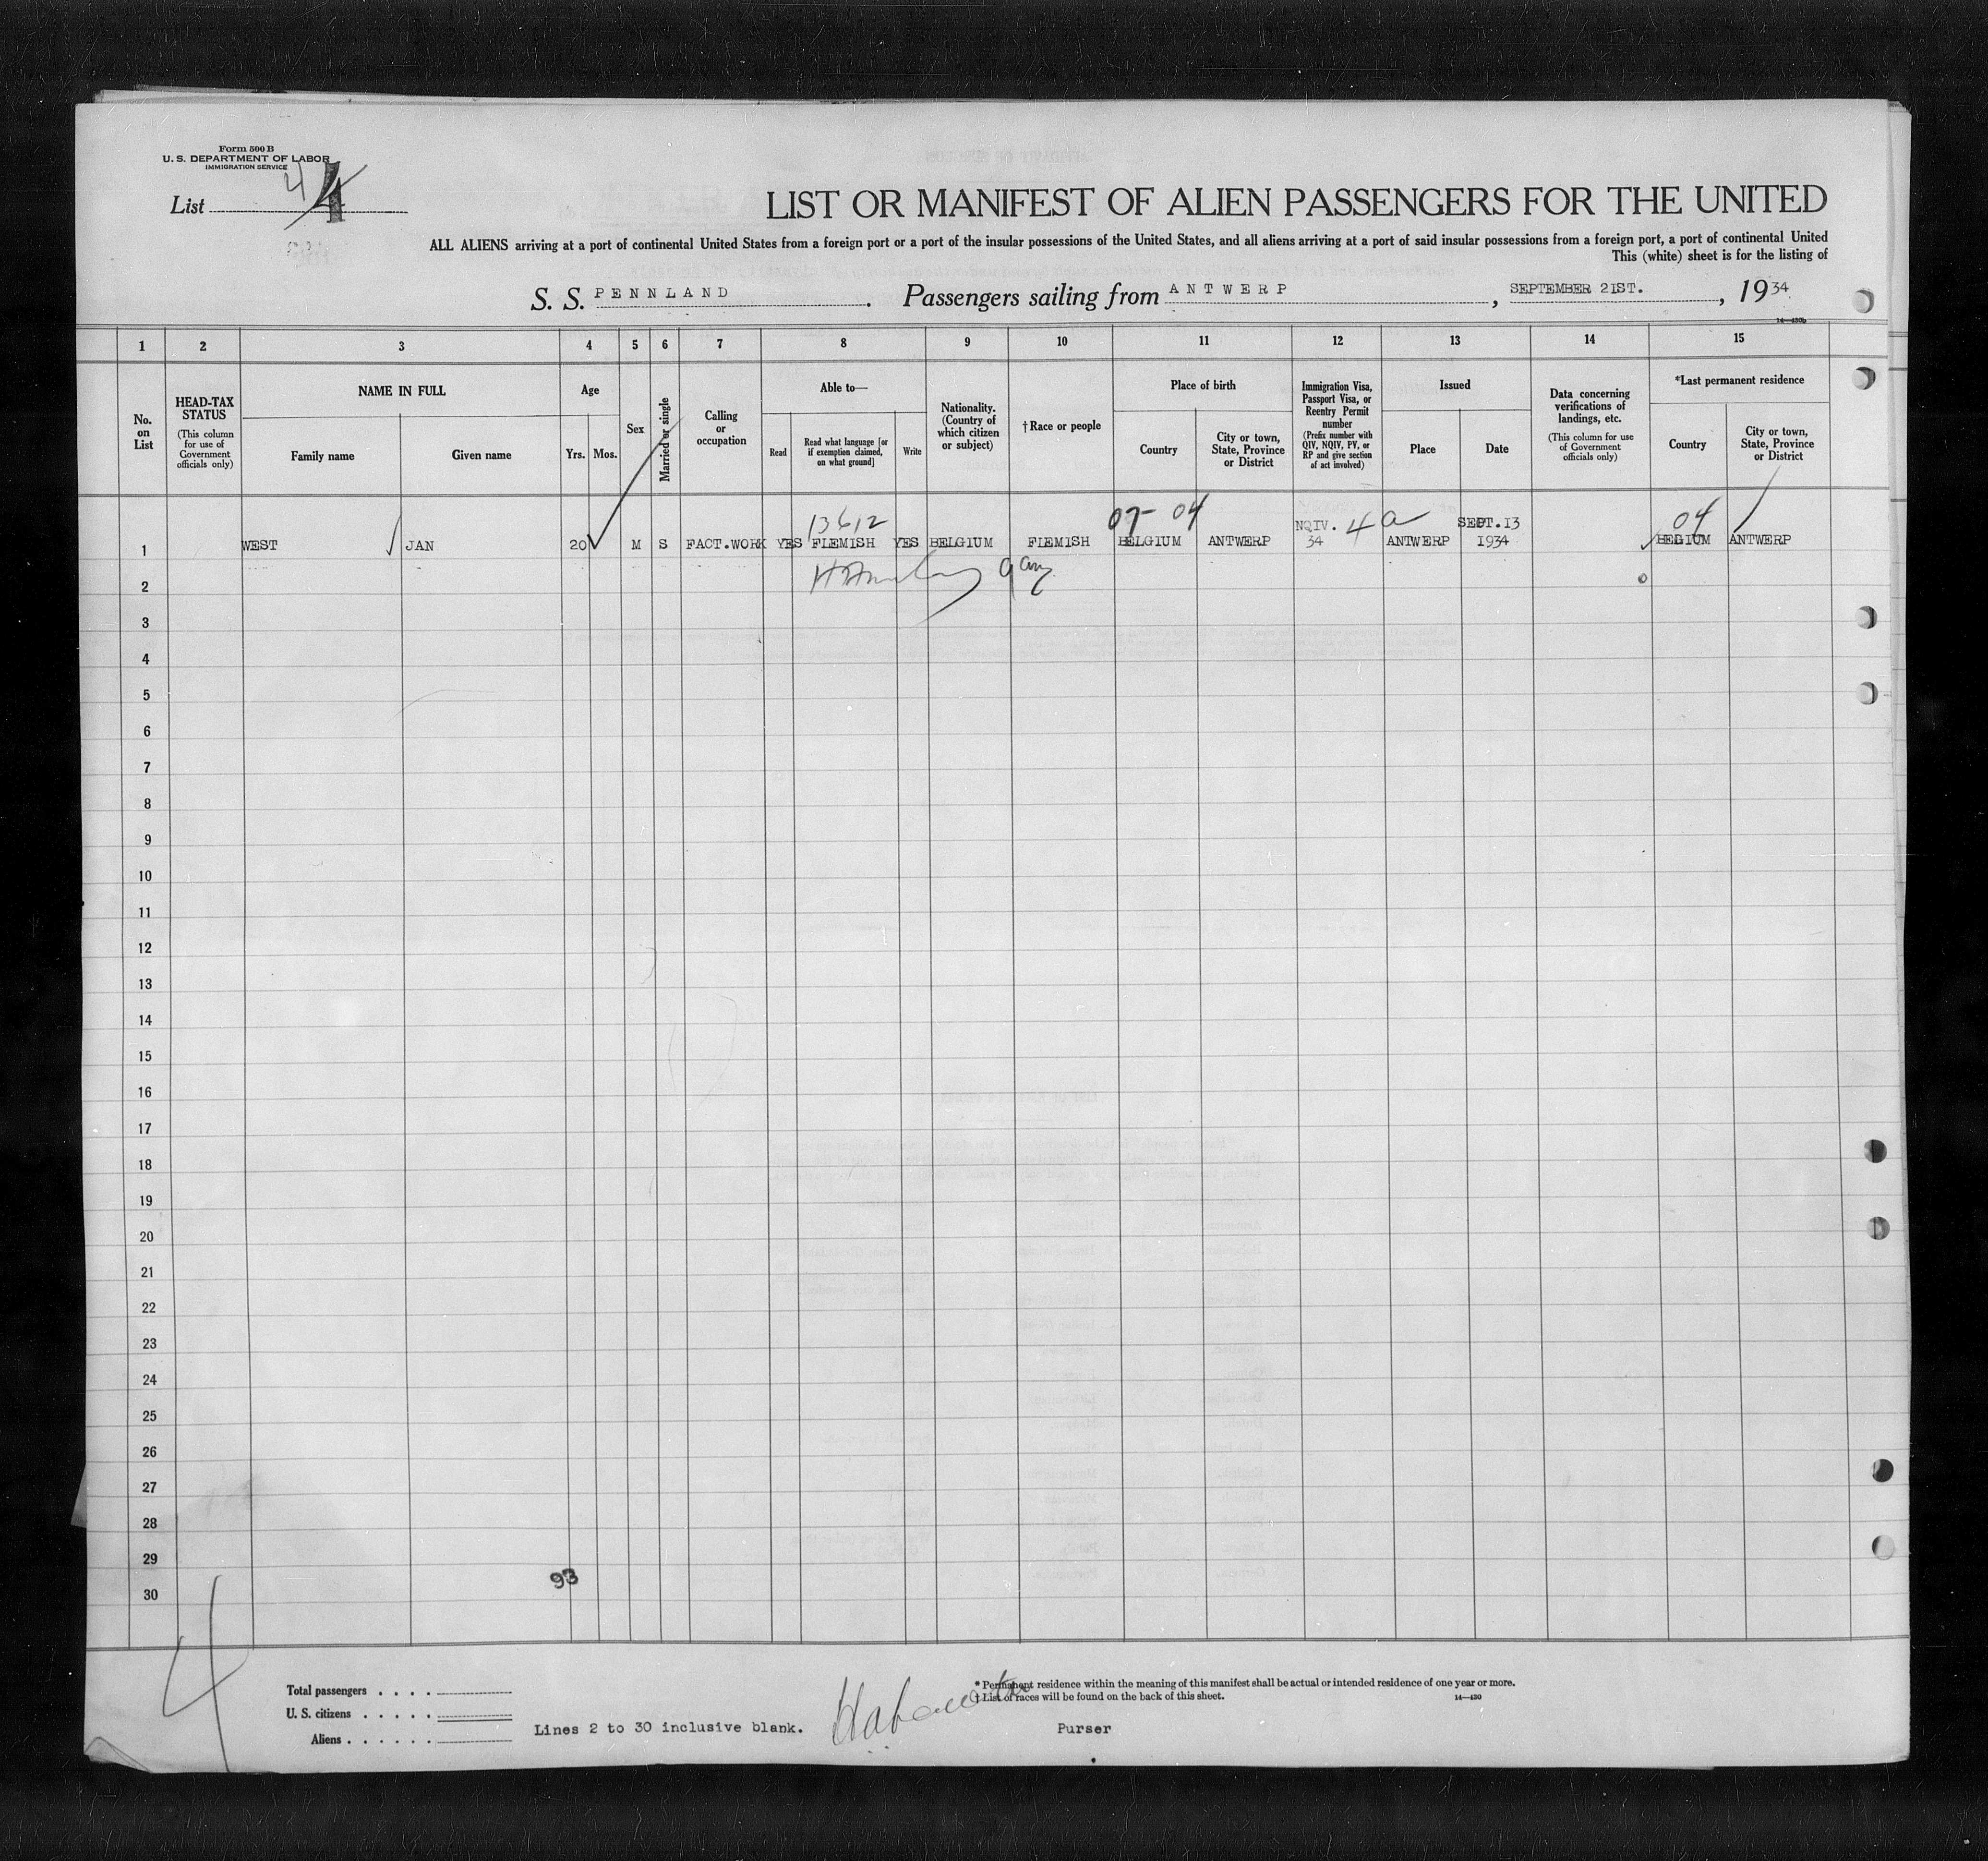 Form 500 B
U. S. DEPARTMENT OF LABOR
IMMIGRATION SERVICE
List 4 4
LIST OR MANIFEST OF ALIEN PASSENGERS FOR THE UNITED
ALL ALIENS arriving at a port of continental United States from a foreign port or a port of the insular possessions of the United States, and all aliens arriving at a port of said insular possessions from a foreign port, a port of continental United
This (white) sheet is for the listing of
S. S. PENNLAND. Passengers sailing from ANTWERP, SEPTEMBER 21ST., 1934.
14—430b
1 2 3 4 5 6 7 8 9 10 11 12 13 14 15
No. on List
HEAD-TAX STATUS
(This column for use of Government officials only)
NAME IN FULL
Family name
Given name
Age
Yrs. Mos.
Sex
Married or single
Calling or occupation
Able to—
Read
Read what language [or if exemption claimed, on what ground]
Write
Nationality. (Country of which citizen or subject)
†Race or people
Place of birth
Country
City or town, State, Province or District
Immigration Visa, Passport Visa, or Reentry Permit number
(Prefix number with QIV, NQIV, PV, or RP and give section of act involved)
Issued
Place
Date
Data concerning verifications of landings, etc.
(This column for use of Government officials only)
*Last permanent residence
Country
City or town, State, Province or District
13612 07- 04 NQIV. 4 a SEPT.13 04
1 WEST JAN 20 M S FACT.WORK YES FLEMISH YES BELGIUM FLEMISH BELGIUM ANTWERP 34 ANTWERP 1934 BELGIUM ANTWERP
2
3
4
5
6
7
8
9
10
11
12
13
14
15
16
17
18
19
20
21
22
23
24
25
26
27
28
29
93
30
4
Total passengers . . . .
U. S. citizens . . . . .
Aliens . . . . . .
Lines 2 to 30 inclusive blank.
* Permanent residence within the meaning of this manifest shall be actual or intended residence of one year or more.
† List of races will be found on the back of this sheet.
14—430
Purser